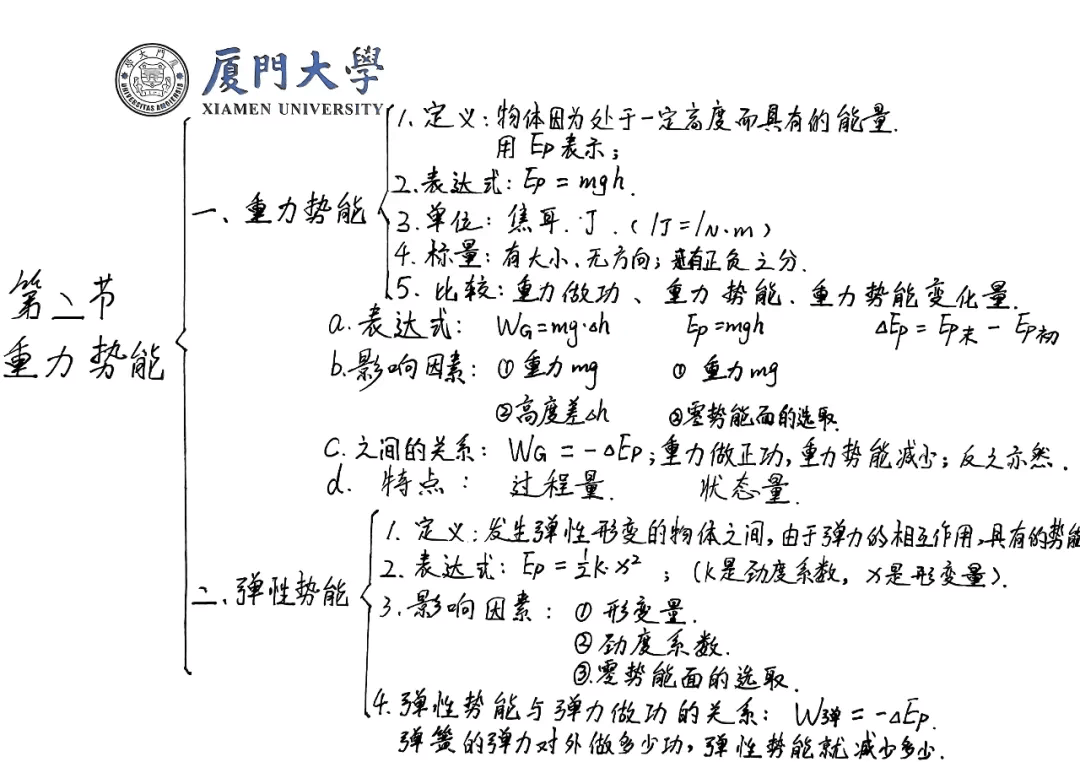 厦門大學
XIAMEN UNIVERSITY
第二节
重力势能
一、重力势能
1. 定义：物体因为处于一定高度而具有的能量.
用Ep表示；
2.表达式：Ep=mgh.
3.单位：焦耳.J.（1J=1N·m）
4.标量：有大小、无方向；有正负之分.
5.比较：重力做功、重力势能、重力势能变化量.
a.表达式： WG=mg·Δh Ep=mgh ΔEp=Ep末-Ep初
b.影响因素：①重力mg ①重力mg
②高度差Δh ②零势能面的选取
C.之间的关系：WG=-ΔEp；重力做正功，重力势能减少；反之亦然.
d. 特点： 过程量. 状态量.
二、弹性势能
1. 定义：发生弹性形变的物体之间，由于弹力的相互作用，具有的势能
2.表达式：Ep=½k·x²；（k是劲度系数，x是形变量）.
3.影响因素：①形变量.
②劲度系数.
③零势能面的选取.
4.弹性势能与弹力做功的关系：W弹=-ΔEp.
弹簧的弹力对外做多少功，弹性势能就减少多少.